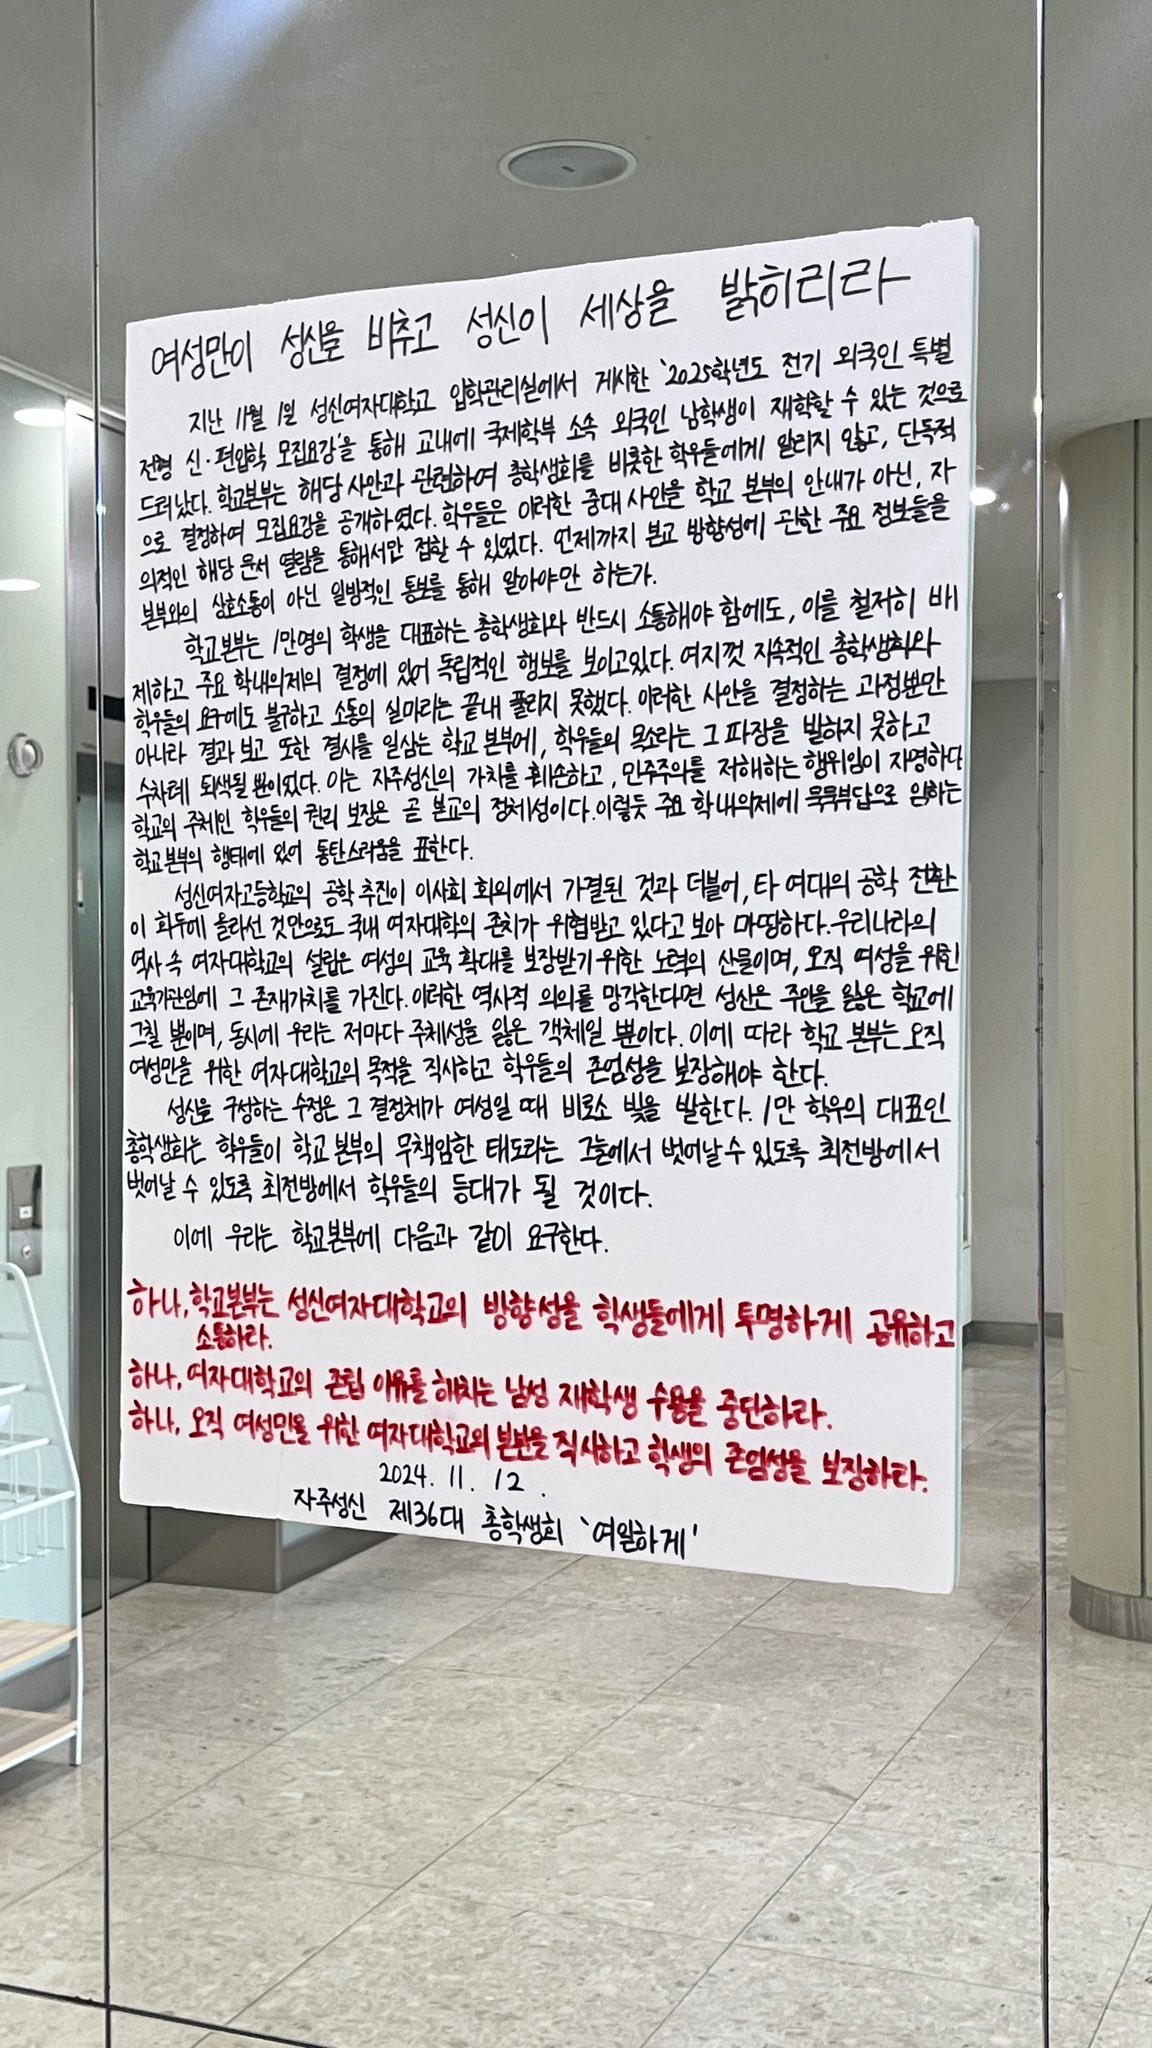 여성만이 성신을 비추고 성신이 세상을 밝히리라
지난 11월 1일 성신여자대학교 입학관리실에서 게시한 '2025학년도 전기 외국인 특별
전형 신·편입학 모집요강'을 통해 교내에 국제학부 소속 외국인 남학생이 재학할 수 있는 것으로
드러났다. 학교본부는 해당 사안과 관련하여 총학생회를 비롯한 학우들에게 알리지 않고, 단독적
으로 결정하여 모집요강을 공개하였다. 학우들은 이러한 중대 사안을 학교 본부의 안내가 아닌, 자
의적인 해당 문서 열람을 통해서만 접할 수 있었다. 언제까지 본교 방향성에 관한 주요 정보들을
본부와의 상호소통이 아닌 일방적인 통보를 통해 알아야만 하는가.
학교본부는 1만명의 학생을 대표하는 총학생회와 반드시 소통해야 함에도, 이를 철저히 배
제하고 주요 학내의제의 결정에 있어 독립적인 행보를 보이고있다. 여지껏 지속적인 총학생회와
학우들의 요구에도 불구하고 소통의 실마리는 끝내 풀리지 못했다. 이러한 사안을 결정하는 과정뿐만
아니라 결과 보고 또한 결시를 일삼는 학교 본부에, 학우들의 목소리는 그 파장을 발하지 못하고
수차례 퇴색될 뿐이었다. 이는 자주성신의 가치를 훼손하고, 민주주의를 저해하는 행위임이 자명하다
학교의 주체인 학우들의 권리 보장은 곧 본교의 정체성이다. 이렇듯 주요 학내의제에 묵묵부답으로 임하는
학교본부의 행태에 있어 통탄스러움을 표한다.
성신여자고등학교의 공학 추진이 이사회 회의에서 가결된 것과 더불어, 타 여대의 공학 전환
이 화두에 올라선 것만으로도 국내 여자대학의 존치가 위협받고 있다고 보아 마땅하다. 우리나라의
역사 속 여자대학교의 설립은 여성의 교육 확대를 보장받기 위한 노력의 산물이며, 오직 여성을 위한
교육기관임에 그 존재가치를 가진다. 이러한 역사적 의의를 망각한다면 성신은 주인을 잃은 학교에
그칠 뿐이며, 동시에 우리는 저마다 주체성을 잃은 객체일 뿐이다. 이에 따라 학교 본부는 오직
여성만을 위한 여자대학교의 목적을 직시하고 학우들의 존엄성을 보장해야 한다.
성신을 구성하는 수정은 그 결정체가 여성일 때 비로소 빛을 발한다. 1만 학우의 대표인
총학생회는 학우들이 학교 본부의 무책임한 태도라는 그늘에서 벗어날 수 있도록 최전방에서
벗어날 수 있도록 최전방에서 학우들의 등대가 될 것이다.
이에 우리는 학교본부에 다음과 같이 요구한다.
하나, 학교본부는 성신여자대학교의 방향성을 학생들에게 투명하게 공유하고
소통하라.
하나, 여자대학교의 존립 이유를 해치는 남성 재학생 수용을 중단하라.
하나, 오직 여성만을 위한 여자대학교의 본분을 직시하고 학생의 존엄성을 보장하라.
2024. 11. 12.
자주성신 제36대 총학생회 '여일하게'